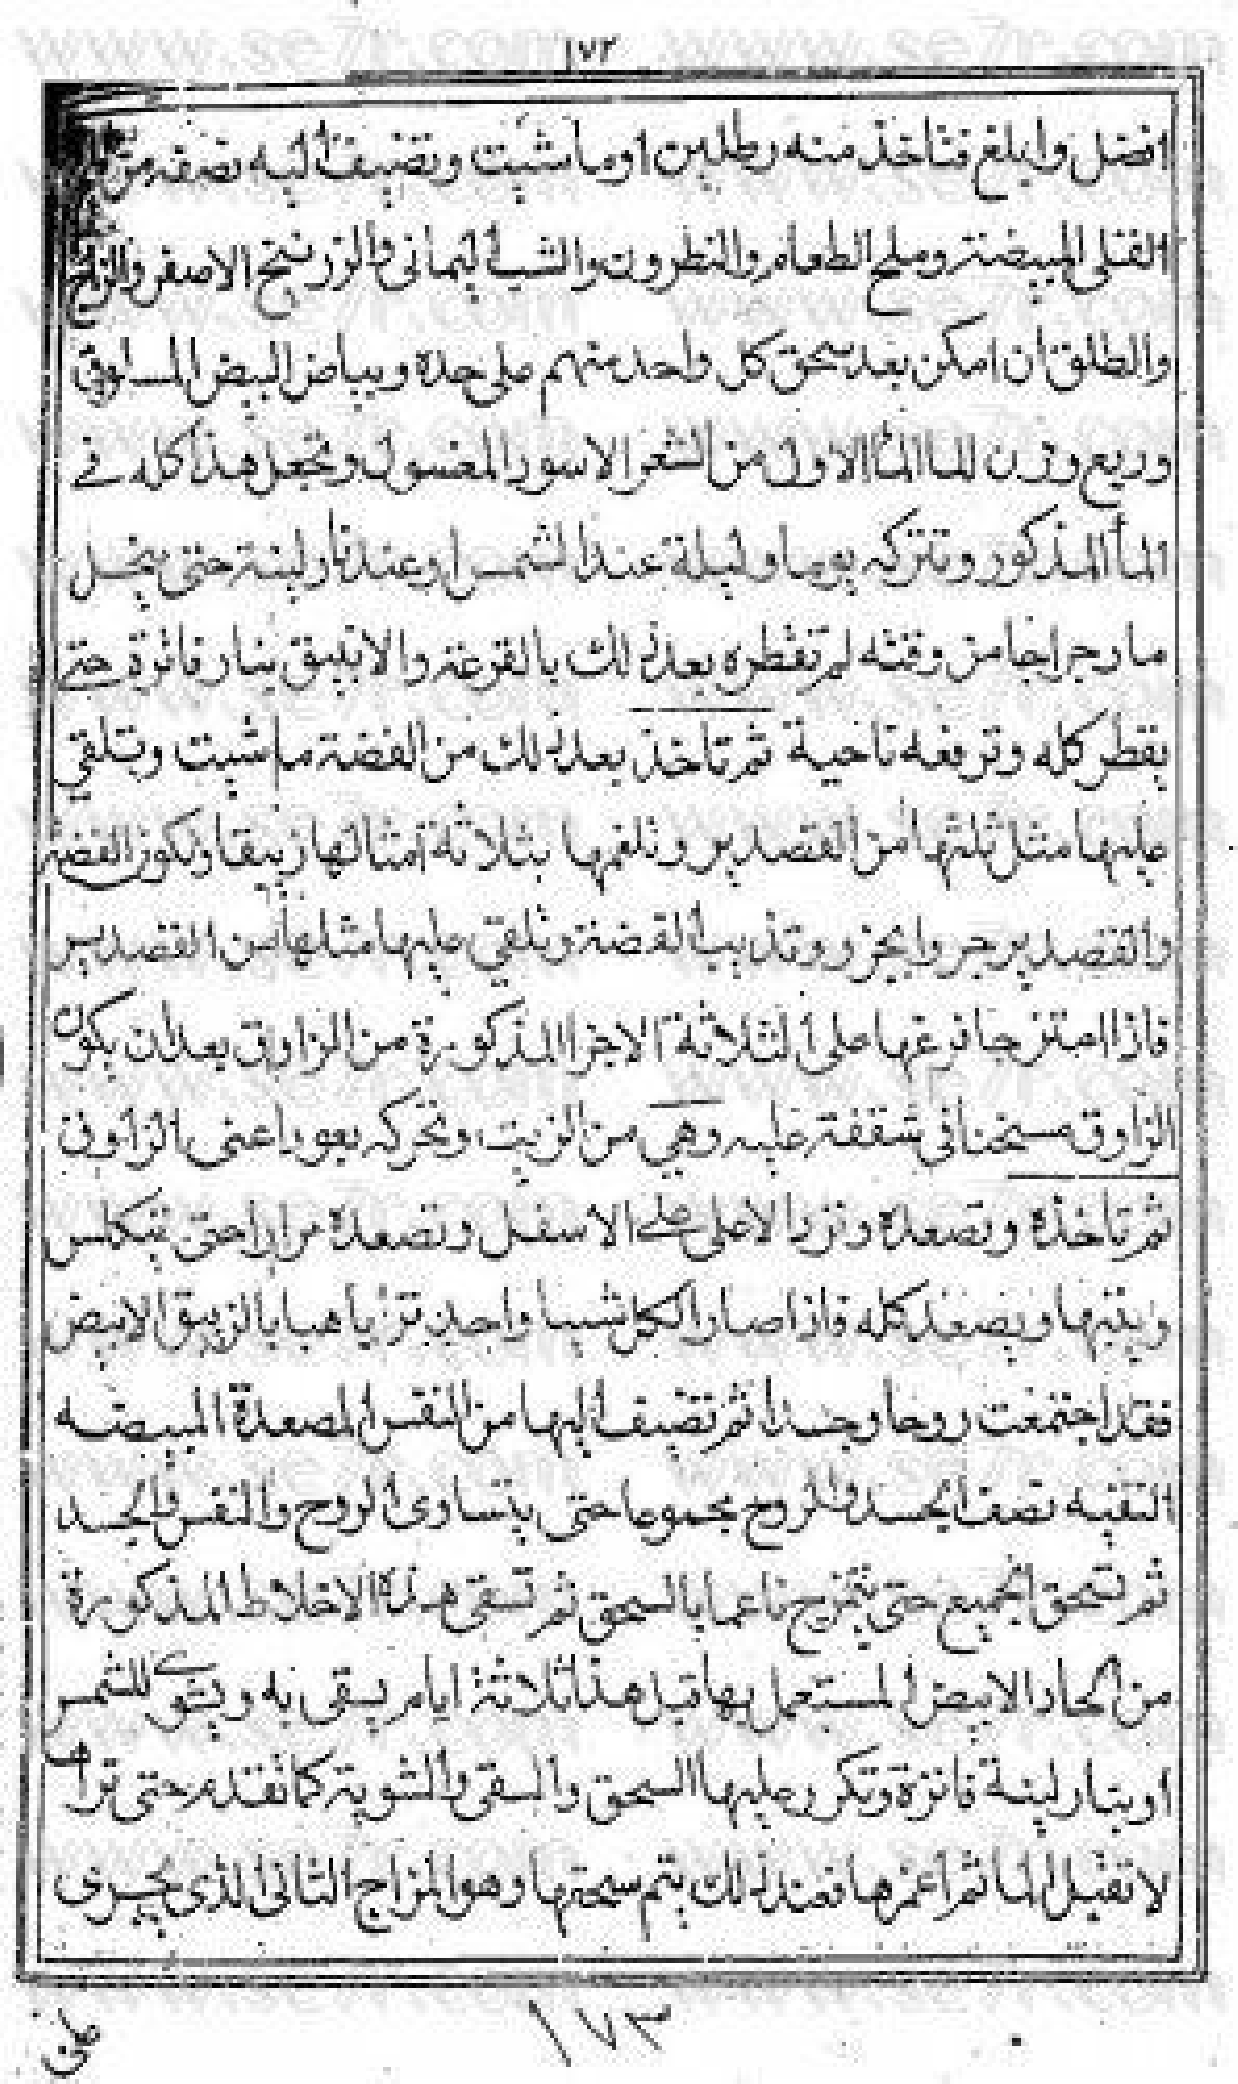 ١٧٢
افضل وابلغ فتاخذ منه رطلين اوما شيت وتضيف اليه نصفه من
القلى المبيضة وملح الطعام والنطرون والشب اليمانى والزرنيخ الاصفر والزاج
والطلق ان امكن بعد سحق كل واحد منهم على حدة وبياض البيض المسلوق
وربع وزن الما الما الاول من الشعر الاسود المغسول وتجعل هذا كله في
الما المذكور وتتركه يوما وليلة عند الشمس او عند نار لينة حتى ينحل
ما رجراجا من وقته ثم تقطره بعد ذلك بالقرعة والانبيق بنار فاترة حتى
يقطر كله وترفعه ناحية ثم تاخذ بعد ذلك من الفضة ما شيت وتلقي
عليها مثل ثلثها من القصدير وتلغمها بثلاثة امثالها زيبقا وتكون الفضة
والقصدير جزوا بجزو وتذيب الفضة وتلقي عليها مثلها من القصدير
فاذا امتزجا فرغها على الثلاثة الاجزا المذكورة من الزاوق بعد ان يكون
الزاوق مسخنا فى شقفة عليه وهي من الزيت وتحركه بعود اعنى الزاوق
ثم تاخذه وتصعده وترد الاعلى على الاسفل وتصعده مرارا حتى يتكلس
ويتبها ويصعد كله فاذا صار الكل شيا واحد ترابا هبايا بالزيبق الابيض
فقد اجتمعت روحا وجسدا ثم تضيف اليها من النفس المصعدة المبيضه
النقيه نصف الجسد والروح مجموعا حتى يتساوى الروح والنفس والجسد
ثم تسحق الجميع حتى يمتزج ناعما بالسحق ثم تسقى هذه الاخلاط المذكورة
من الحاد الابيض المستعمل بها قبل هذا ثلاثة ايام يسقى به ويشوي للشمس
او بنار لينة فاترة وتكرر عليها السحق والسقى والتشوية كما تقدم حتى تراها
لا تقبل الما ثم اغمرها فعند ذلك يتم سحقها وهو المزاج الثانى الذى يجزى
١٧٣